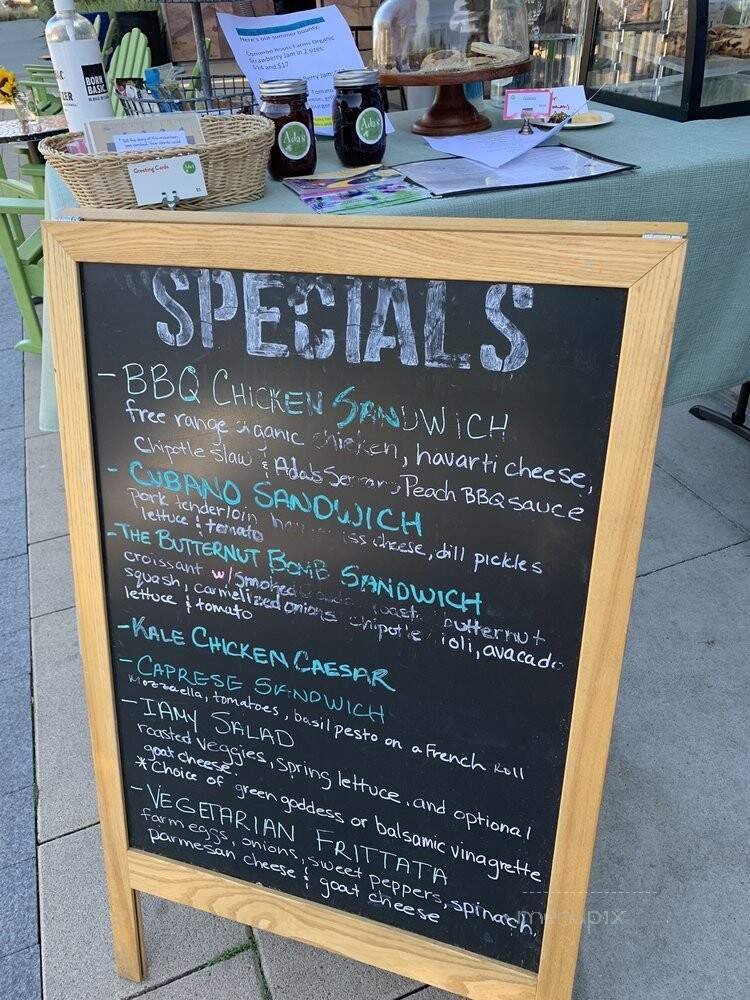 Here's our summer bounty:
Organic
Strawberry Jam in 2 sizes:
$14 and $17
BORN
BASIC
Ada's
Ada's
Greeting Cards
SPECIALS
- BBQ CHICKEN SANDWICH
free range organic chicken, havarti cheese,
Chipotle slaw & Ada's Serrano Peach BBQ sauce
- CUBANO SANDWICH
pork tenderloin cheese, dill pickles
lettuce & tomato
- THE BUTTERNUT BOMB SANDWICH
croissant w/ smoked butternut
squash, carmelized onions, chipotle avacado
lettuce & tomato
- KALE CHICKEN CAESAR
- CAPRESE SANDWICH
Mozzaella, tomatoes, basil pesto on a French Roll
- IAMY SALAD
roasted veggies, spring lettuce, and optional
goat cheese.
* Choice of green goddess or balsamic vinagrette
- VEGETARIAN FRITTATA
farm eggs, onions, sweet peppers, spinach,
parmesan cheese & goat cheese
menupix